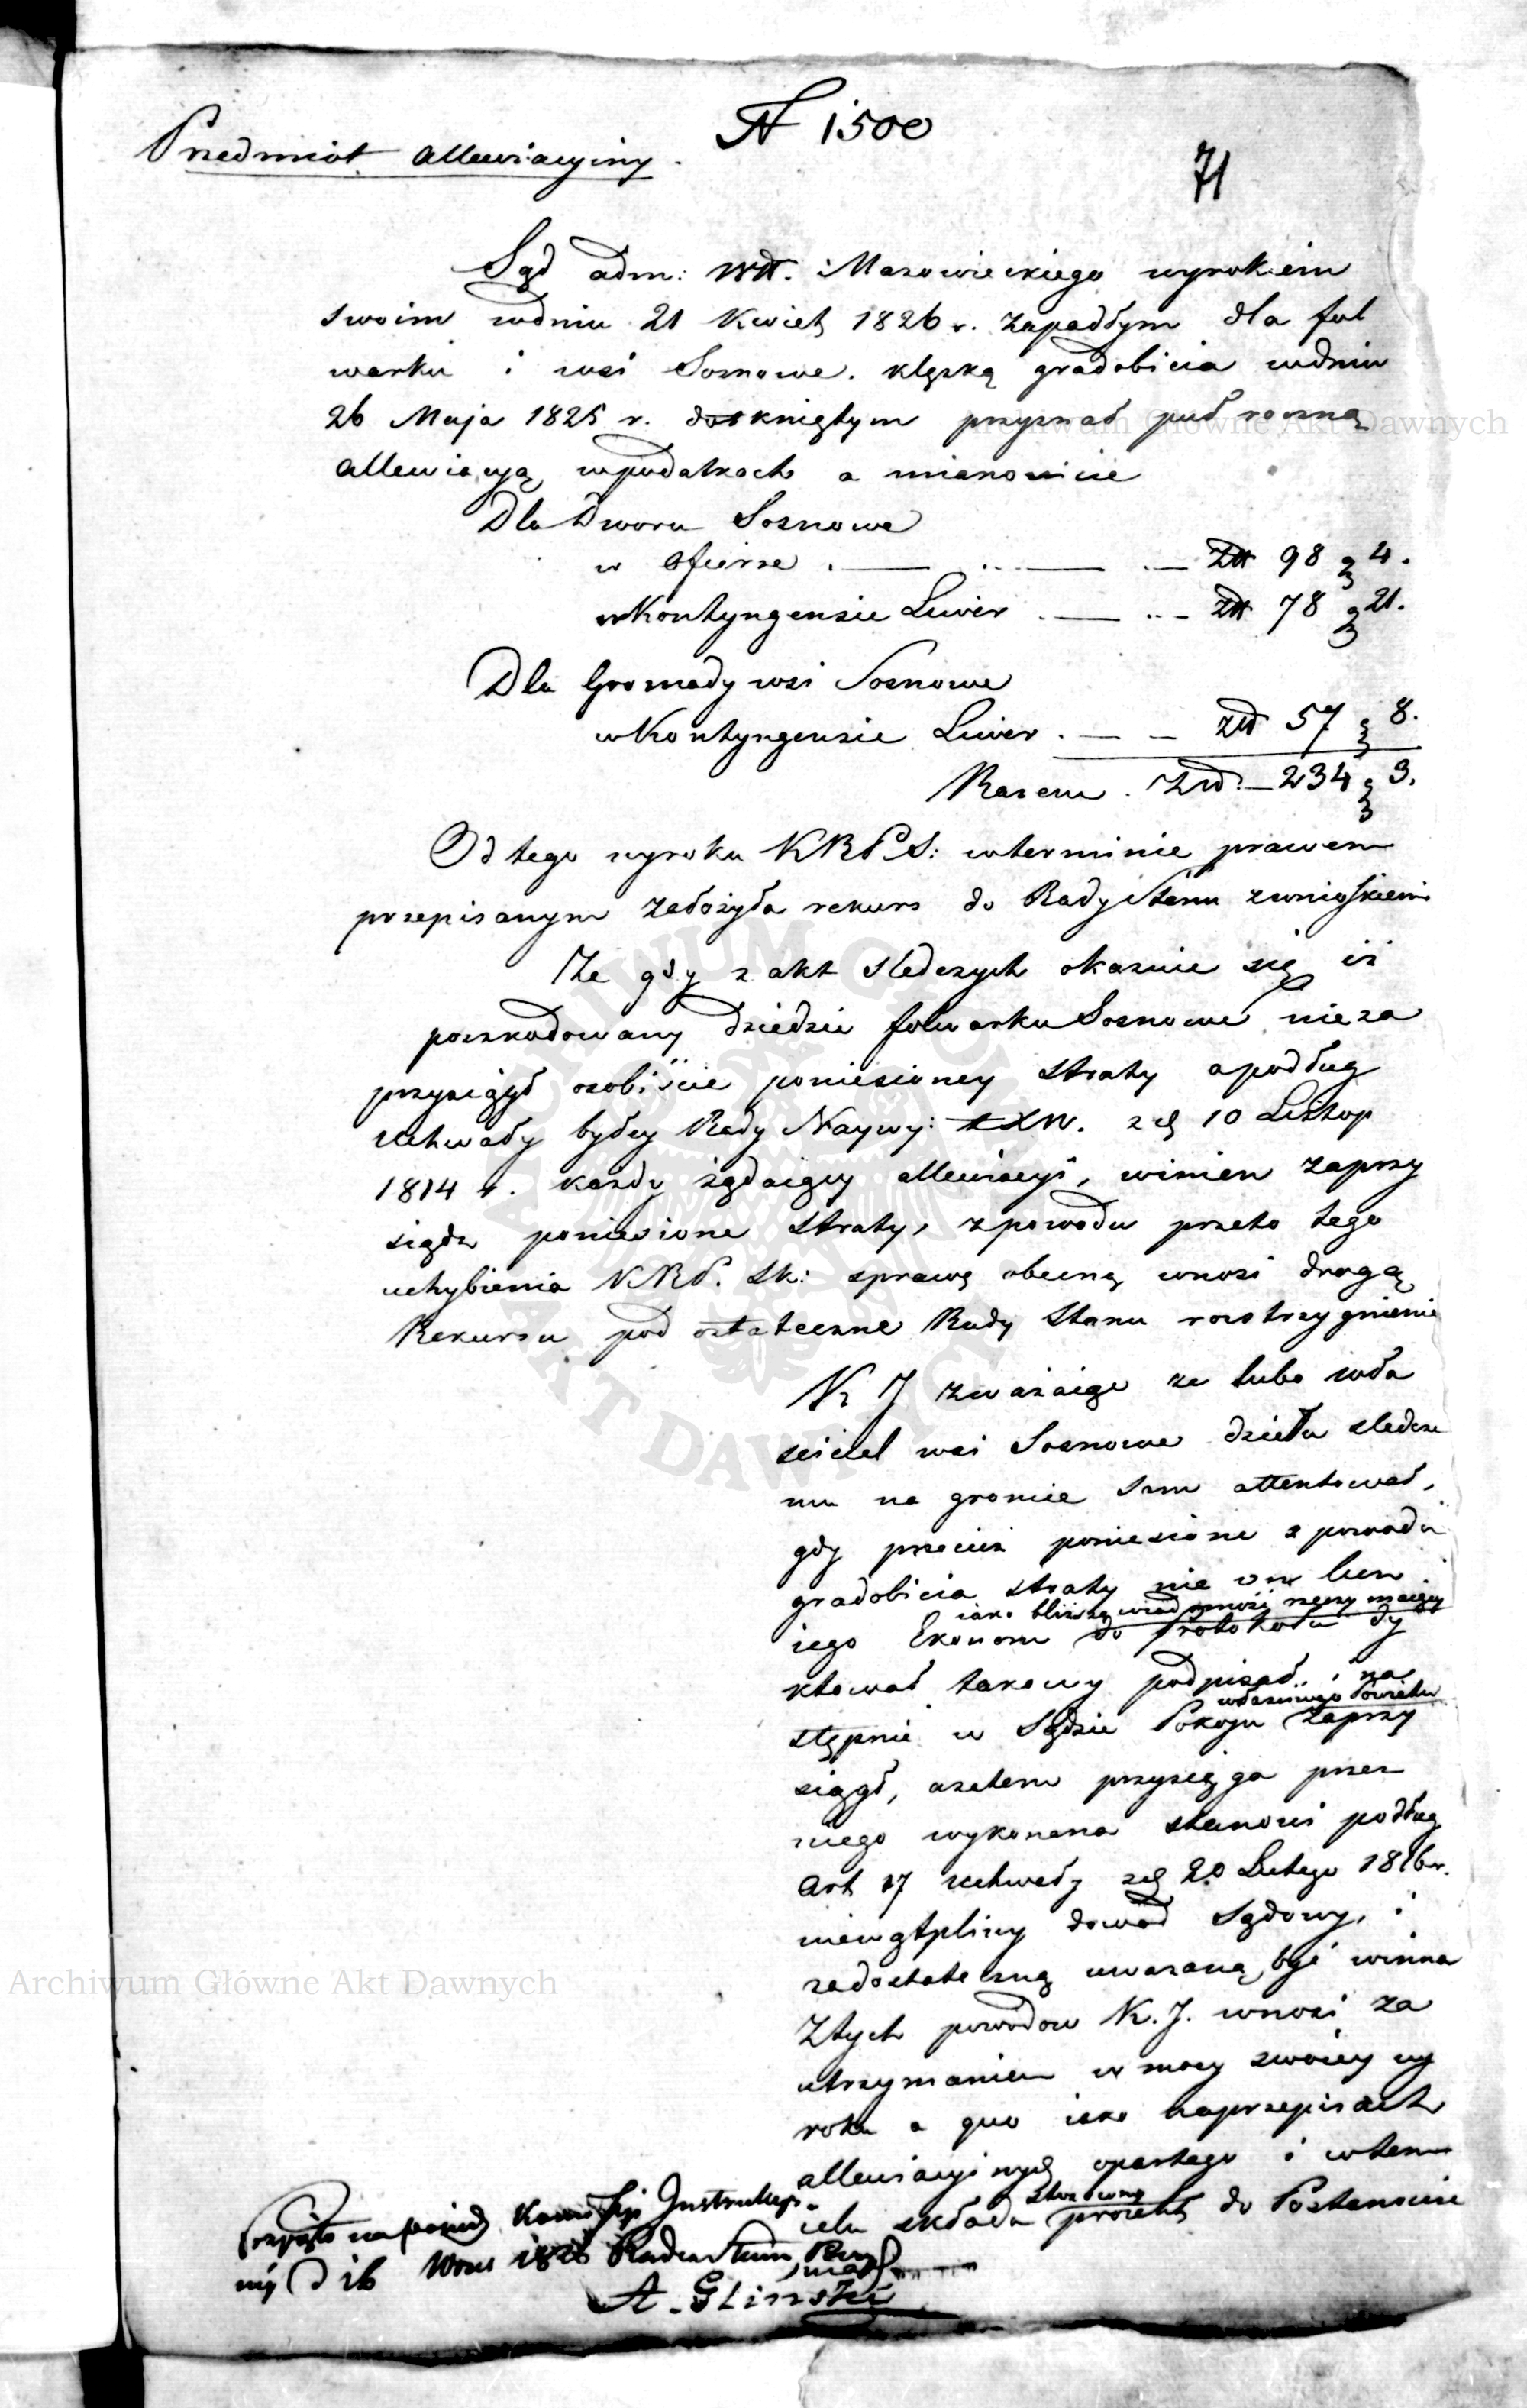 N 1500
Przedmiot allewiacyiny.
71
Sąd adm: Wtt. Mazowieckiego wyrokiem
swoim wdniu 21 Kwiet 1826 r. zapadłym dla fol
warku i wsi Sosnowe. klęską gradobicia wdniu
26 Maja 1825 r. dotkniętym przyznał puł roczną
allewiacyą wpodatkach a mianowicie
Dla Dworu Sosnowe
w Ofierze . — . . — . — Złt 98 g 4.
w Kontyngensie Liwer . — . . — złt 78 g 21.
Dla Gromady wsi Sosnowe
w Kontyngensie Liwer . — — złt 57 g 8.
Razem . Złt. — 234 g 3.
Od tego wyroku KRPS: wterminie prawem
przepisanym założyła rekurs do Rady Stanu zwnioskiem
Że gdy z akt sledczych okazuie się iż
poszkodowany dziedzic folwarku Sosnowe nieza
przysiągł osobiście poniesioney straty a podług
uchwały byłey Rady Naywy: txw. z d 10 Listop
1814 r. kazdy żądaiący allewiacyi, winien zaprzy
siądz poniesione straty, zpowodu przeto tego
uchybienia KRP. Sk: sprawę obecną wnosi drogą
Rekursu pod ostateczne Rady Stanu rozstrzygnienie
K J zwazaiąc ze lubo wła
sciciel wsi Sosnowe dziełu sledcze
mu na groncie sam attentował,
gdy przeciez poniesione z powodu
gradobicia straty nie on lecz
iako bliższą wiadomość rzeczy maiący
iego Ekonom do Protokołu dy
ktował takowy podpisał, i na
własciwego Powiatu
stępnie w Sądzie Pokoju zaprzy
siągł, azatem przysięga przez
niego wykonana stanowi podług
Art 17 uchwały z d 20 Lutego 1816 r.
niewątpliwy dowod Sądowy, i
zadostateczną uwazaną być winna
Ztych powodow K. J. wnosi za
utrzymaniem w mocy swoiey wy
roku a quo iako naprzepisach
allewiacyinych opartego i wtem
stosowny
celu składa proiekt do Postanowie
Przyięto na posiedz Kommissyi Instrukcyi
néy D 16 Wrze 1826 Radca Stanu Prez
A. Glinski
Archiwum Główne Akt Dawnych
Archiwum Główne Akt Dawnych
ARCHIWUM GŁÓWNE AKT DAWNYCH